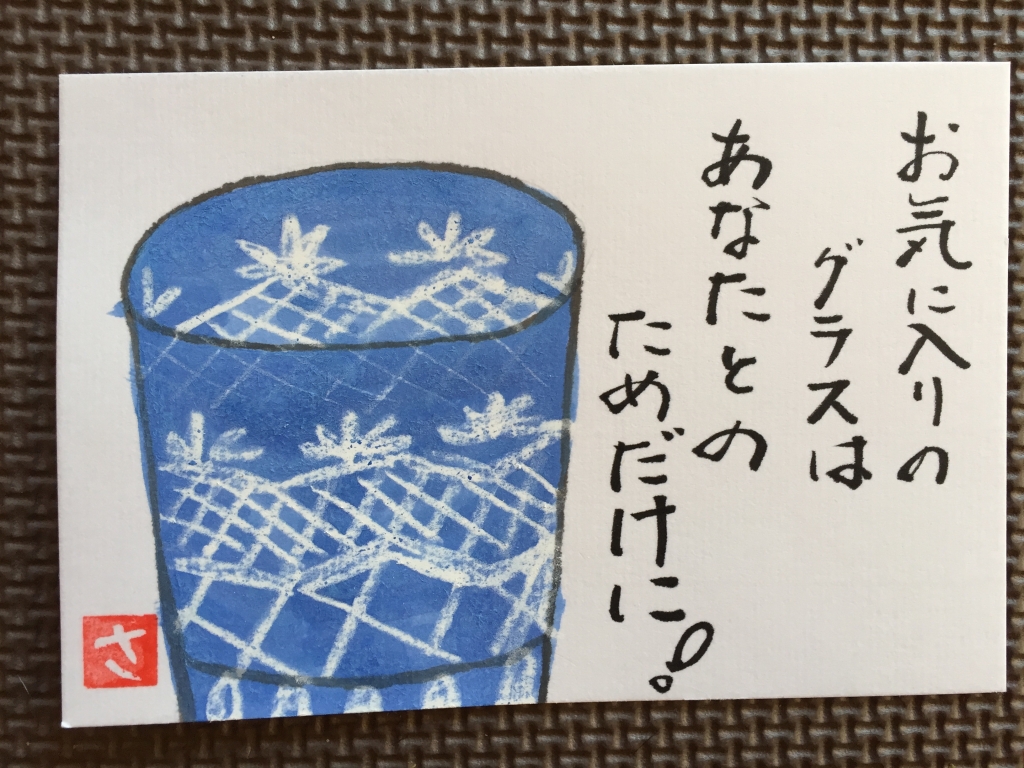 お気に入りの
グラスは
あなたとの
ためだけに!
さ